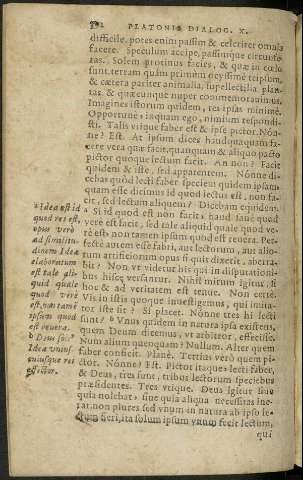 PLATONIS DIALOG. X.
difficile. potes enim passim & celeriter omnia
facere. Speculum accipe, passimque circunfe-
ras. Solem protinus facies, & quæ in cœlo
sunt. terram quàm primùm, teipsum,
& cætera pariter animalia, supellectilia, plan-
tas, & quæcunque nuper commemorauimus.
Imagines istorum quidem, res ipsas minimè.
Opportunè, inquam ego, nimium respondi-
sti. Talis vtique faber est & ipse pictor. Nón-
ne? Est. At ipsum dices haudquaquam fa-
cere vera quæ facit, quanquam & aliquo pacto
pictor quoque lectum facit. An non? Facit
quidem & iste, sed apparentem. Nónne di-
cebas quòd lecti faber speciem quidem ipsam,
quam esse dicimus id quod lectus est, non fa-
cit, sed lectum aliquem? Dicebam equidem.
Si id quod est non facit, haud sanè quod
verè est facit, sed tale aliquid quale quod ve-
rè est, non tamen ipsum quod est reuera. Per-
fectè autem esse fabri, aut lectorum, aut alio-
rum artificiorum opus si quis dixerit, aberra-
bit? Non vt videtur his qui in disputationi-
bus hisce versantur. Nihil mirum igitur, si
hoc & ad veritatem est tenue. Non certè.
Vis in istis quoque inuestigemus, qui imita-
tor iste sit? Si placet. Nónne tres hi lecti
sunt? Vnus quidem in natura ipsa existens,
quem Deum dicemus, vt arbitror, effecisse.
Num alium quenquam? Nullum. Alter quem
faber conficit. Planè. Tertius verò quem pi-
ctor. Nónne? Est. Pictor itaque, lecti faber,
& Deus, tres sunt, tribus lectorum speciebus
præsidentes. Tres vtique. Deus igitur siue
quia noluit, siue quia aliqua necessitas ine-
rat, non plures sed vnum in natura ab ipso le-
ctum fieri, ita solum ipsum vnum fecit lectum,
qui
a Idea est id
quod res est,
opus verò
ad similitu-
dinem Ideæ
elaboratum
est tale ali-
quid quale
quod verè
est, nõ tamē
ipsum quod
est reuera.
b Deus
Idea vnius-
cuiusque rei
effector.